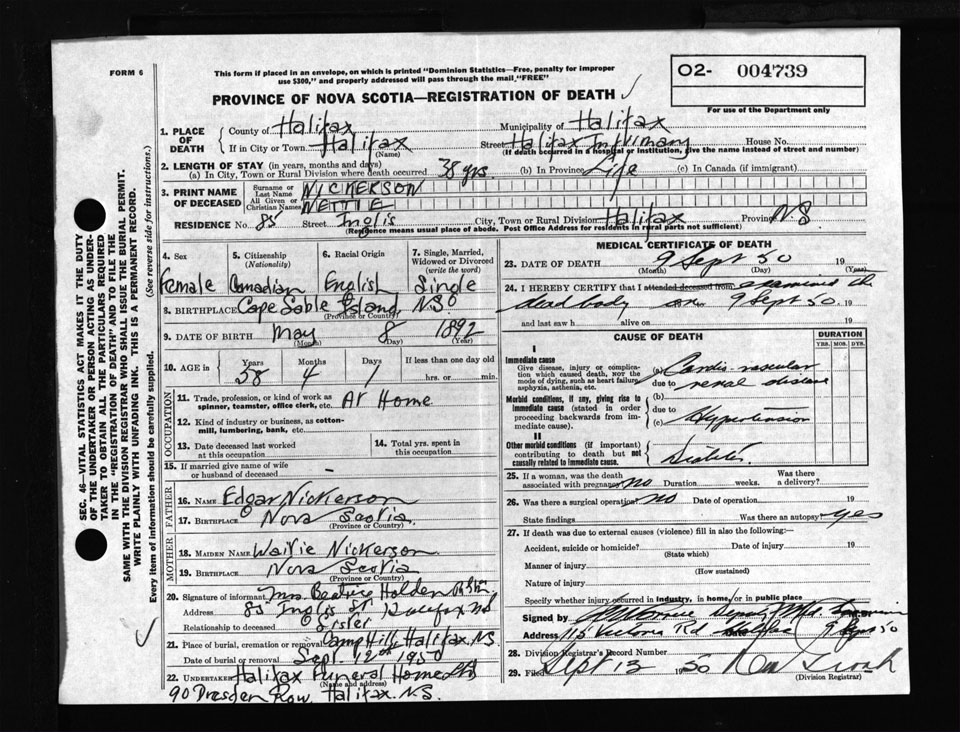 FORM 6
This form if placed in an envelope, on which is printed "Dominion Statistics—Free, penalty for improper
use $300," and properly addressed will pass through the mail, "FREE"
O2- 004739
For use of the Department only
PROVINCE OF NOVA SCOTIA—REGISTRATION OF DEATH
1. PLACE OF DEATH { County of Halifax Municipality of Halifax
If in City or Town Halifax (Name) Street Halifax Infirmary House No.
(If death occurred in a hospital or institution, give the name instead of street and number)
2. LENGTH OF STAY (in years, months and days)
(a) In City, Town or Rural Division where death occurred 38 yrs. (b) In Province Life (c) In Canada (if immigrant)
3. PRINT NAME OF DECEASED { Surname or Last Name NICKERSON
All Given or Christian Names NETTIE
RESIDENCE No. 85 Street Inglis City, Town or Rural Division Halifax Province N.S
(Residence means usual place of abode. Post Office Address for residents in rural parts not sufficient)
4. Sex Female
5. Citizenship (Nationality) Canadian
6. Racial Origin English
7. Single, Married, Widowed or Divorced (write the word) Single
8. BIRTHPLACE Cape Sable Island N.S.
(Province or Country)
9. DATE OF BIRTH May 8 1892
(Month) (Day) (Year)
10. AGE in { Years Months Days If less than one day old
58 4 1 hrs. or min.
OCCUPATION
11. Trade, profession, or kind of work as spinner, teamster, office clerk, etc. At Home
12. Kind of industry or business, as cotton-mill, lumbering, bank, etc.
13. Date deceased last worked at this occupation
14. Total yrs. spent in this occupation
15. If married give name of wife or husband of deceased –
FATHER
16. NAME Edgar Nickerson
17. BIRTHPLACE Nova Scotia
(Province or Country)
MOTHER
18. MAIDEN NAME Nickerson
19. BIRTHPLACE Nova Scotia
(Province or Country)
20. Signature of informant Mrs. Beatrice Holden
Address 85 Inglis St Halifax NS
Relationship to deceased Sister
21. Place of burial, cremation or removal Camp Hill, Halifax, NS
Date of burial or removal Sept. 12th 1950
22. UNDERTAKER Halifax Funeral Home Ltd
(Name and address)
90 Dresden Row, Halifax. N.S.
MEDICAL CERTIFICATE OF DEATH
23. DATE OF DEATH 9 Sept 50 19
(Month) (Day) (Year)
24. I HEREBY CERTIFY that I attended deceased from examined the
dead body on 9 Sept 50. 19
and last saw h alive on 19
CAUSE OF DEATH DURATION
YRS. MOS. DYS.
I
Immediate cause
Give disease, injury or complication which caused death, NOT the mode of dying, such as heart failure, asphyxia, asthenia, etc.
(a) Cardio-vascular
due to renal disease
Morbid conditions, if any, giving rise to immediate cause (stated in order proceeding backwards from immediate cause).
(b)
due to
(c) Hypertension
II
Other morbid conditions (if important) contributing to death but not causally related to immediate cause.
25. If a woman, was the death associated with pregnancy? no Duration weeks. Was there a delivery?
26. Was there a surgical operation? no Date of operation 19
State findings Was there an autopsy? yes
27. If death was due to external causes (violence) fill in also the following:
Accident, suicide or homicide? Date of injury 19
(State which)
Manner of injury
(How sustained)
Nature of injury
Specify whether injury occurred in industry, in home, or in public place
Signed by
Address 115 Victoria Rd Halifax 9 Sept 50
28. Division Registrar's Record Number
29. Filed Sept 13 1950
(Division Registrar)
SEC. 46—VITAL STATISTICS ACT MAKES IT THE DUTY
OF THE UNDERTAKER OR PERSON ACTING AS UNDER-
TAKER TO OBTAIN ALL THE PARTICULARS REQUIRED
IN THE "REGISTRATION OF DEATH" AND TO FILE THE
SAME WITH THE DIVISION REGISTRAR WHO SHALL ISSUE THE BURIAL PERMIT.
WRITE PLAINLY WITH UNFADING INK. THIS IS A PERMANENT RECORD.
Every item of information should be carefully supplied. (See reverse side for instructions.)